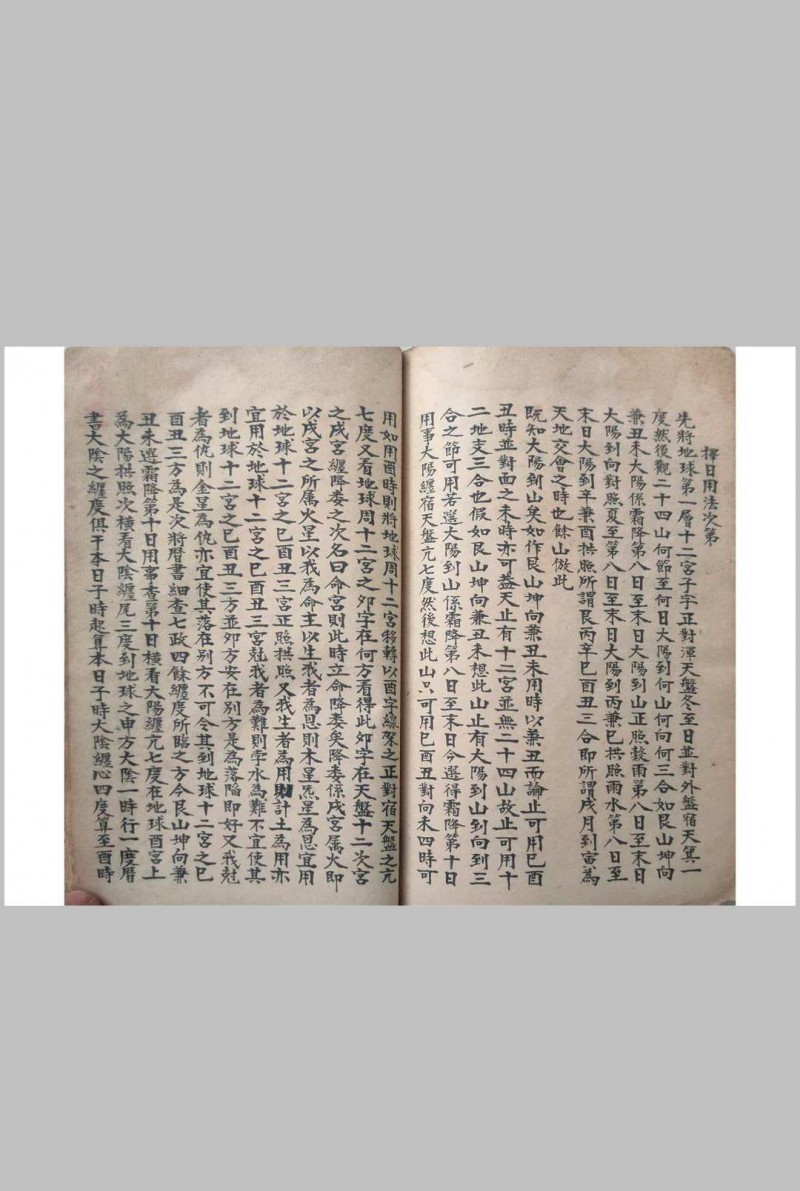 擇日用法次第
先將地球第一層十二宮子字正對渾天盤冬至日並對外盤宿天箕一
度然後觀二十四山何節至何日大陽到何山何向何三合如艮山坤向
兼丑未大陽係霜降第八日至末日大陽到山正照穀雨第八日至末日
大陽到向對照夏至第八日至末日大陽到丙兼巳拱照雨水第八日至
末日大陽到辛兼酉拱照所謂艮丙辛巳酉丑三合即所謂戌月到寅為
天地交會之時也餘山倣此
既知大陽到山矣如作艮山坤向兼丑未用時以兼丑而論止可用巳酉
丑時並對面之未時亦可蓋天止有十二宮並無二十四山故止可用十
二地支三合也假如艮山坤向兼丑未想此山止有大陽到山到向到三
合之節可用若選大陽到山係霜降第八日至末日今選得霜降第十日
用事大陽纏宿天盤亢七度然後想此山只可用巳酉丑對向未四時可
用如用酉時則將地球周十二宮移轉以酉字線架之正對宿天盤之亢
七度又看地球周十二宮之夘字在何方看得此夘字在天盤十二次宮
之戌宮纏降婁之次名曰命宮則此時立命降婁矣降婁係戌宮属火即
以戌宮之所属火星以我為命主以生我者為恩則木星炁星為恩宜用
於地球十二宮之巳酉丑三宮正照拱照又我生者為用財計土為用亦
宜用於地球十二宮之巳酉丑三宮尅我者為難則孛水為難不宜使其
到地球十二宮之巳酉丑三方並夘方安在別方是為落陷即好又我尅
者為仇則金星為仇亦宜使其落在別方不可令其到地球十二宮之巳
酉丑三方為是次將曆書細查七政四餘纏度所臨之方今艮山坤向兼
丑未選霜降第十日用事查第十日橫看大陽纏亢七度在地球酉宮上
為大陽拱照次橫看大陰纏尾三度到地球之申方大陰一時行一度曆
書大陰之纏度俱于本日子時起算本日子時大陰纏心四度算至酉時